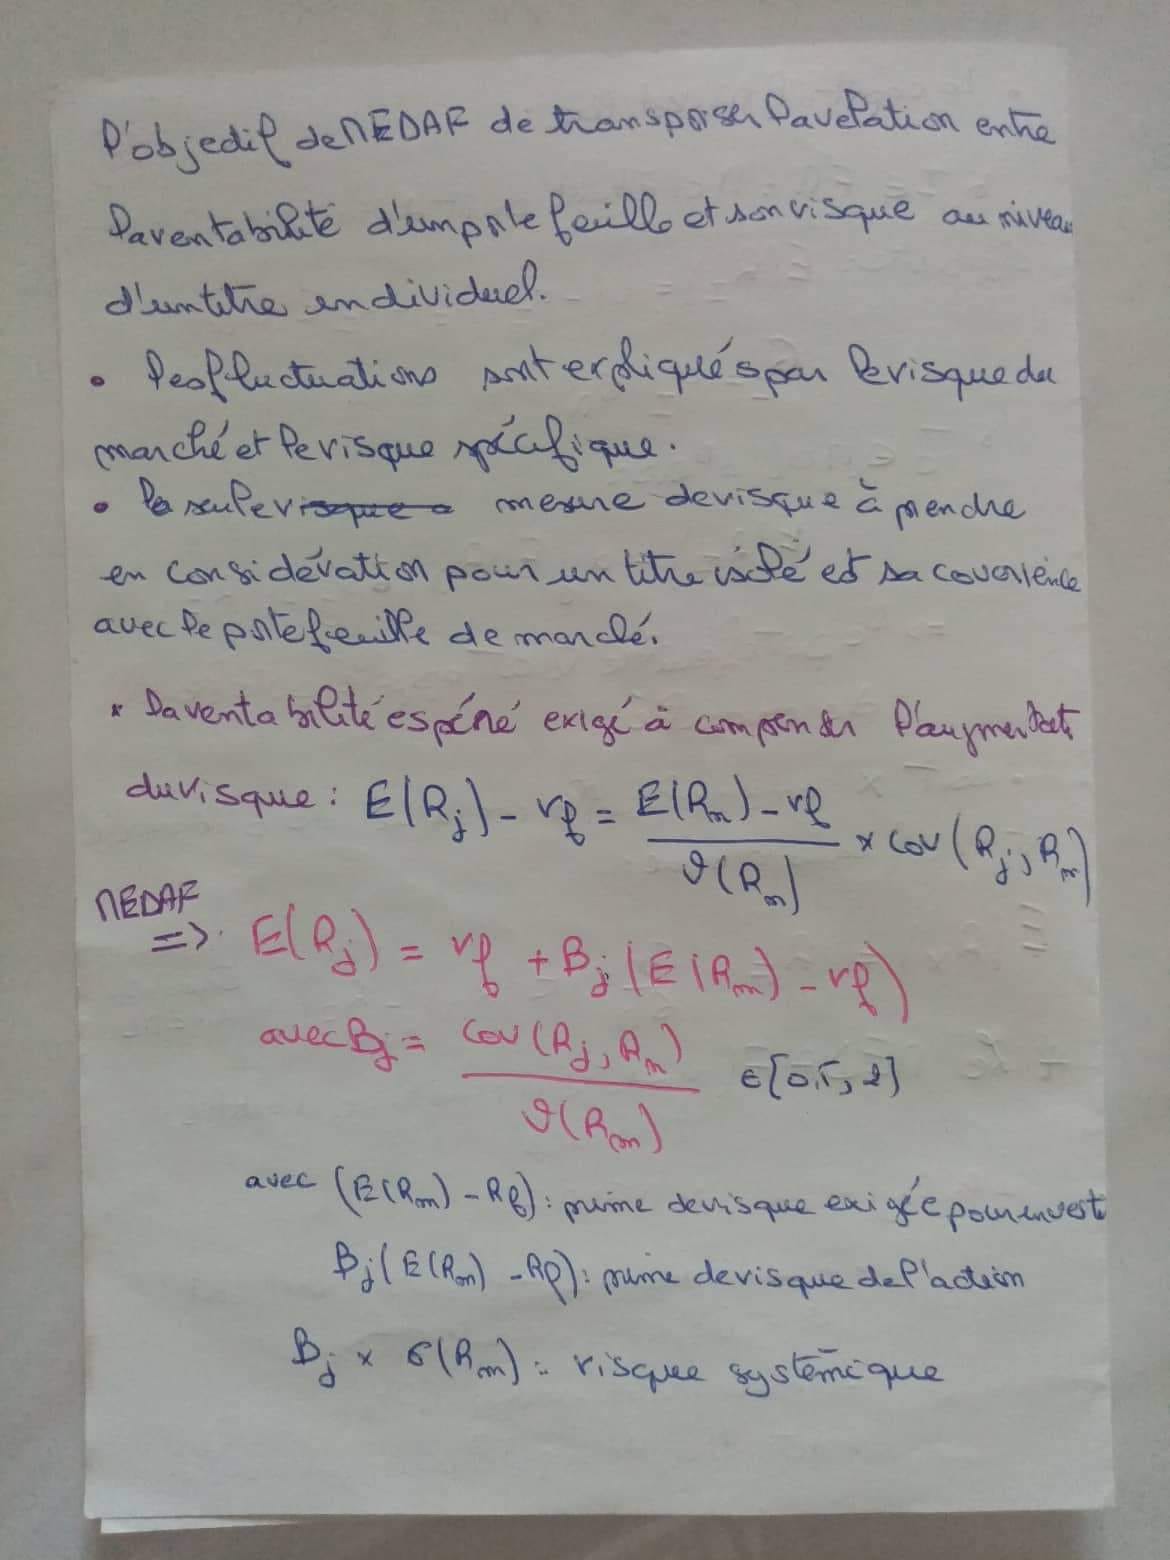 l'objectif de MEDAF de transposer la relation entre
la rentabilité d'un portefeuille et son risque au niveau
d'un titre individuel.
• les fluctuations sont expliqués par le risque du
marché et le risque spécifique.
• la seule risque mesure de risque à prendre
en considération pour un titre isolé est sa covarience
avec le portefeuille de marché.
* la rentabilité espéré exigé à compenser l'augmentat
du risque : E(Rj) - rf = E(Rm) - rf / ϑ(Rm) × cov(Rj, Rm)
MEDAF
=> E(Rj) = rf + Bj (E(Rm) - rf)
avec Bj = cov(Rj, Rm) / ϑ(Rm) ∈ [0,5, 2]
avec (E(Rm) - Rf) : prime de risque exigée pour invest
Bj (E(Rm) - Rf) : prime de risque de l'action
Bj × σ(Rm) : risque systémique